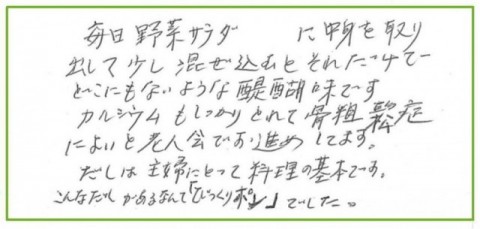 毎日野菜サラダ　　に中身を取り
出して少し混ぜ込むとそれだけで
どこにもないような醍醐味です
カルシウムもしっかりとれて骨粗鬆症
によいと老人会でお進めしてます。
だしは主婦にとって料理の基本です。
こんなだしがあるなんて「びっくりポン」でした。